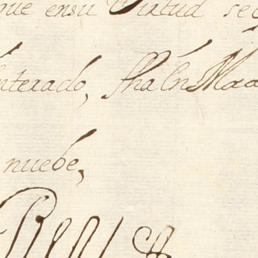 que ensu Virtud se
nterado, fha ên Ma
nuebe,